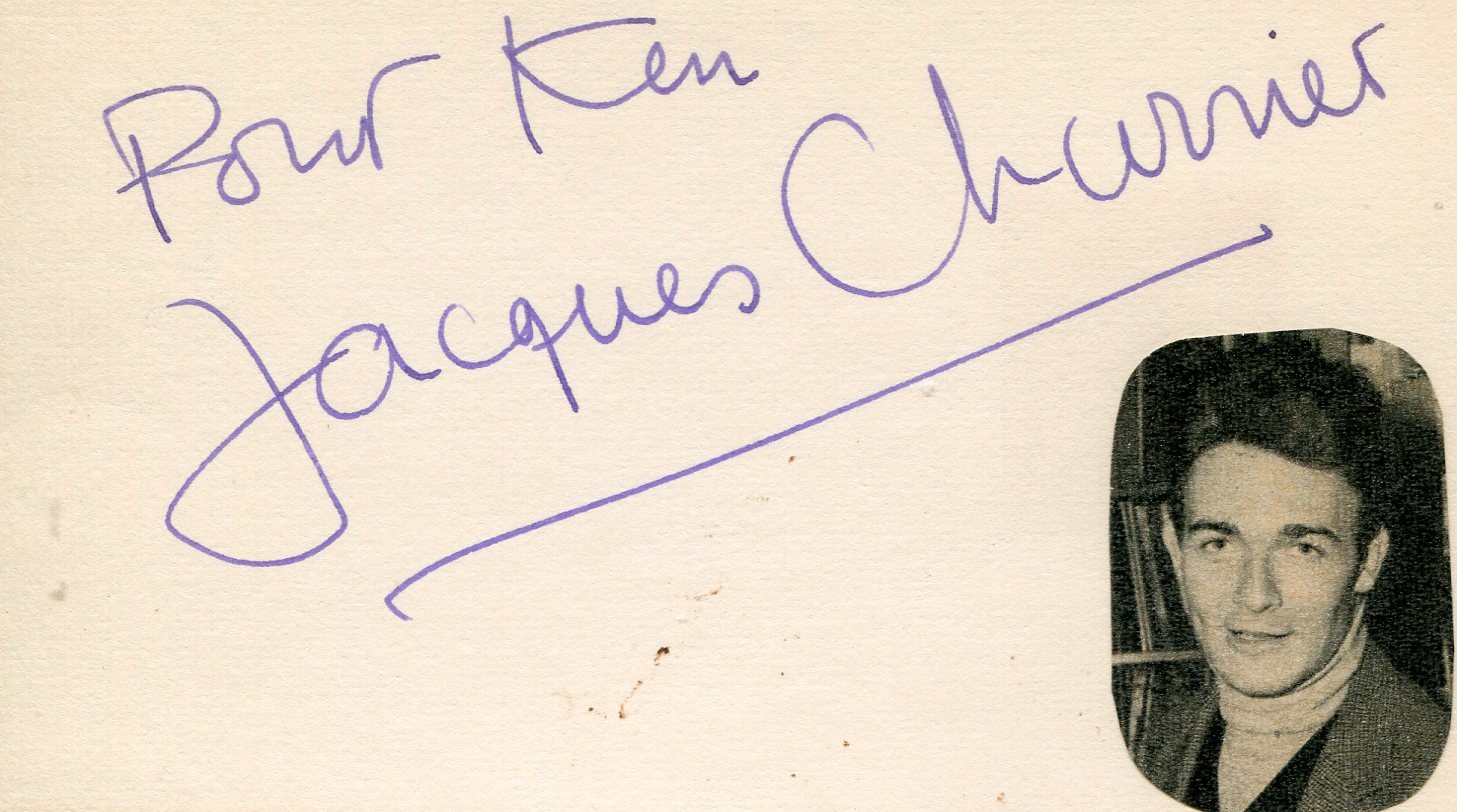 Pour Ken
Jacques Charrier